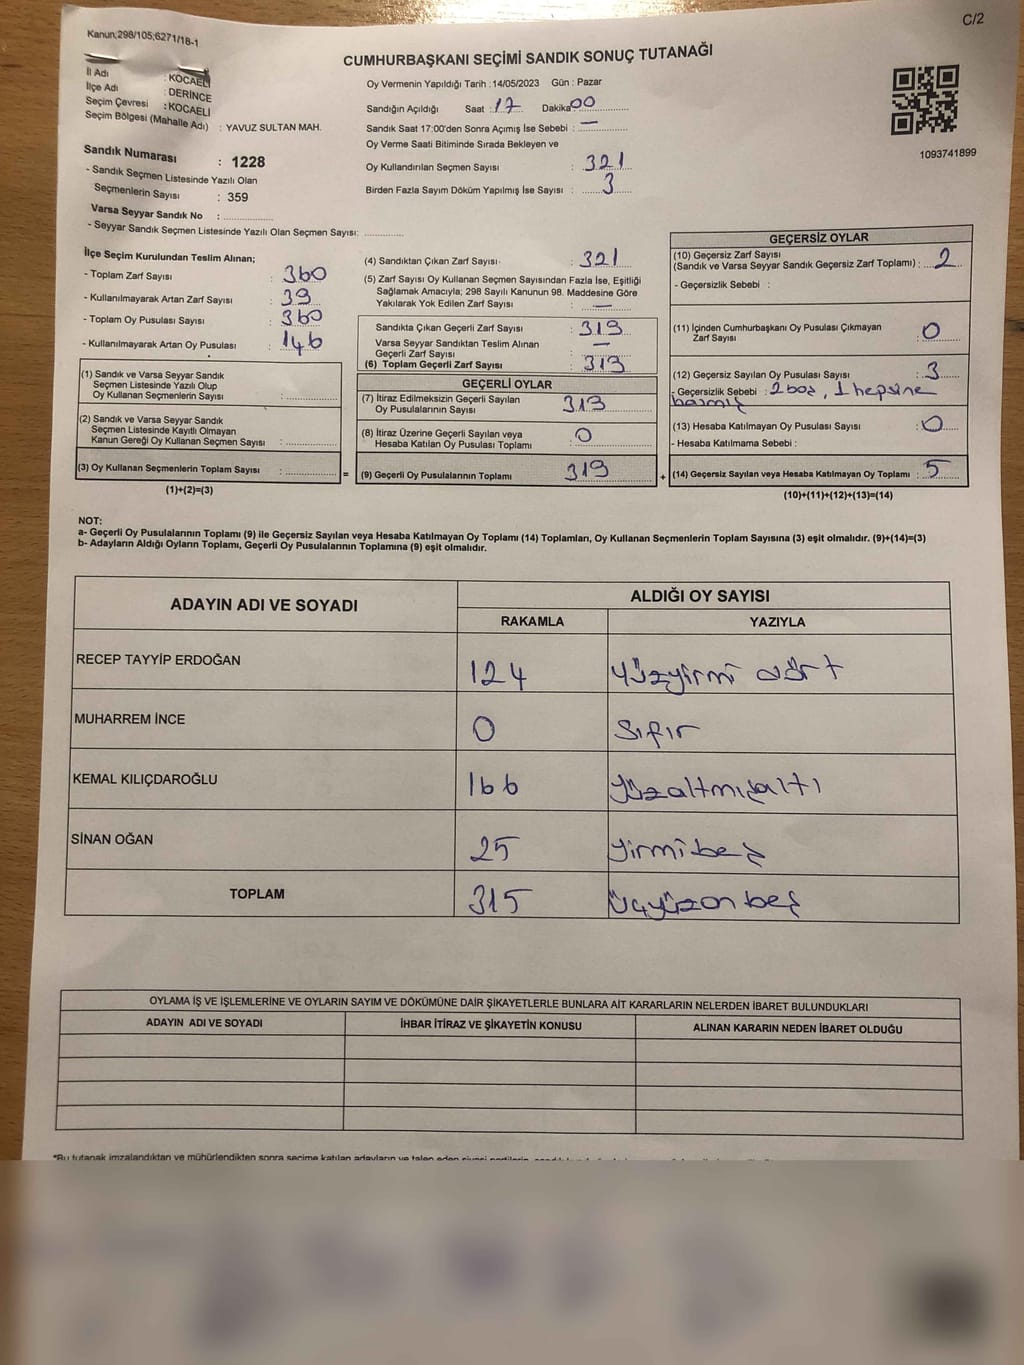 Kanun;298/105;6271/18-1
C/2
CUMHURBAŞKANI SEÇİMİ SANDIK SONUÇ TUTANAĞI
İl Adı : KOCAELİ
İlçe Adı : DERİNCE
Seçim Çevresi : KOCAELİ
Seçim Bölgesi (Mahalle Adı) : YAVUZ SULTAN MAH.
Sandık Numarası : 1228
- Sandık Seçmen Listesinde Yazılı Olan
Seçmenlerin Sayısı : 359
Varsa Seyyar Sandık No : ..............
- Seyyar Sandık Seçmen Listesinde Yazılı Olan Seçmen Sayısı: ............
Oy Vermenin Yapıldığı Tarih : 14/05/2023 Gün : Pazar
Sandığın Açıldığı Saat : 17 Dakika 00
Sandık Saat 17:00'den Sonra Açımış İse Sebebi : —
Oy Verme Saati Bitiminde Sırada Bekleyen ve
Oy Kullandırılan Seçmen Sayısı : 321
Birden Fazla Sayım Döküm Yapılmış İse Sayısı : 3
1093741899
İlçe Seçim Kurulundan Teslim Alınan;
- Toplam Zarf Sayısı : 360
- Kullanılmayarak Artan Zarf Sayısı : 39
- Toplam Oy Pusulası Sayısı : 360
- Kullanılmayarak Artan Oy Pusulası : 146
(1) Sandık ve Varsa Seyyar Sandık
Seçmen Listesinde Yazılı Olup
Oy Kullanan Seçmenlerin Sayısı : ..............
(2) Sandık ve Varsa Seyyar Sandık
Seçmen Listesinde Kayıtlı Olmayan
Kanun Gereği Oy Kullanan Seçmen Sayısı : ..............
(3) Oy Kullanan Seçmenlerin Toplam Sayısı : ..............
(1)+(2)=(3)
=
(4) Sandıktan Çıkan Zarf Sayısı : 321
(5) Zarf Sayısı Oy Kullanan Seçmen Sayısından Fazla İse, Eşitliği
Sağlamak Amacıyla; 298 Sayılı Kanunun 98. Maddesine Göre
Yakılarak Yok Edilen Zarf Sayısı : —
Sandıkta Çıkan Geçerli Zarf Sayısı : 319
Varsa Seyyar Sandıktan Teslim Alınan
Geçerli Zarf Sayısı : —
(6) Toplam Geçerli Zarf Sayısı : 319
GEÇERLİ OYLAR
(7) İtiraz Edilmeksizin Geçerli Sayılan
Oy Pusulalarının Sayısı : 319
(8) İtiraz Üzerine Geçerli Sayılan veya
Hesaba Katılan Oy Pusulası Toplamı : 0
(9) Geçerli Oy Pusulalarının Toplamı 319
+
GEÇERSİZ OYLAR
(10) Geçersiz Zarf Sayısı
(Sandık ve Varsa Seyyar Sandık Geçersiz Zarf Toplamı) : 2
- Geçersizlik Sebebi :
(11) İçinden Cumhurbaşkanı Oy Pusulası Çıkmayan
Zarf Sayısı : 0
(12) Geçersiz Sayılan Oy Pusulası Sayısı : 3
- Geçersizlik Sebebi : 2 boş, 1 hepsine
basmış
(13) Hesaba Katılmayan Oy Pusulası Sayısı : 0
- Hesaba Katılmama Sebebi :
(14) Geçersiz Sayılan veya Hesaba Katılmayan Oy Toplamı : 5
(10)+(11)+(12)+(13)=(14)
NOT:
a- Geçerli Oy Pusulalarının Toplamı (9) ile Geçersiz Sayılan veya Hesaba Katılmayan Oy Toplamı (14) Toplamları, Oy Kullanan Seçmenlerin Toplam Sayısına (3) eşit olmalıdır. (9)+(14)=(3)
b- Adayların Aldığı Oyların Toplamı, Geçerli Oy Pusulalarının Toplamına (9) eşit olmalıdır.
ADAYIN ADI VE SOYADI ALDIĞI OY SAYISI
RAKAMLA YAZIYLA
RECEP TAYYİP ERDOĞAN 124 Yüzyirmi dört
MUHARREM İNCE 0 Sıfır
KEMAL KILIÇDAROĞLU 166 Yüzaltmışaltı
SİNAN OĞAN 25 Yirmibeş
TOPLAM 315 Üçyüzonbeş
OYLAMA İŞ VE İŞLEMLERİNE VE OYLARIN SAYIM VE DÖKÜMÜNE DAİR ŞİKAYETLERLE BUNLARA AİT KARARLARIN NELERDEN İBARET BULUNDUKLARI
ADAYIN ADI VE SOYADI İHBAR İTİRAZ VE ŞİKAYETİN KONUSU ALINAN KARARIN NEDEN İBARET OLDUĞU
*Bu tutanak imzalandıktan ve mühürlendikten sonra seçime katılan adayların ve talep eden siyasi partilerin